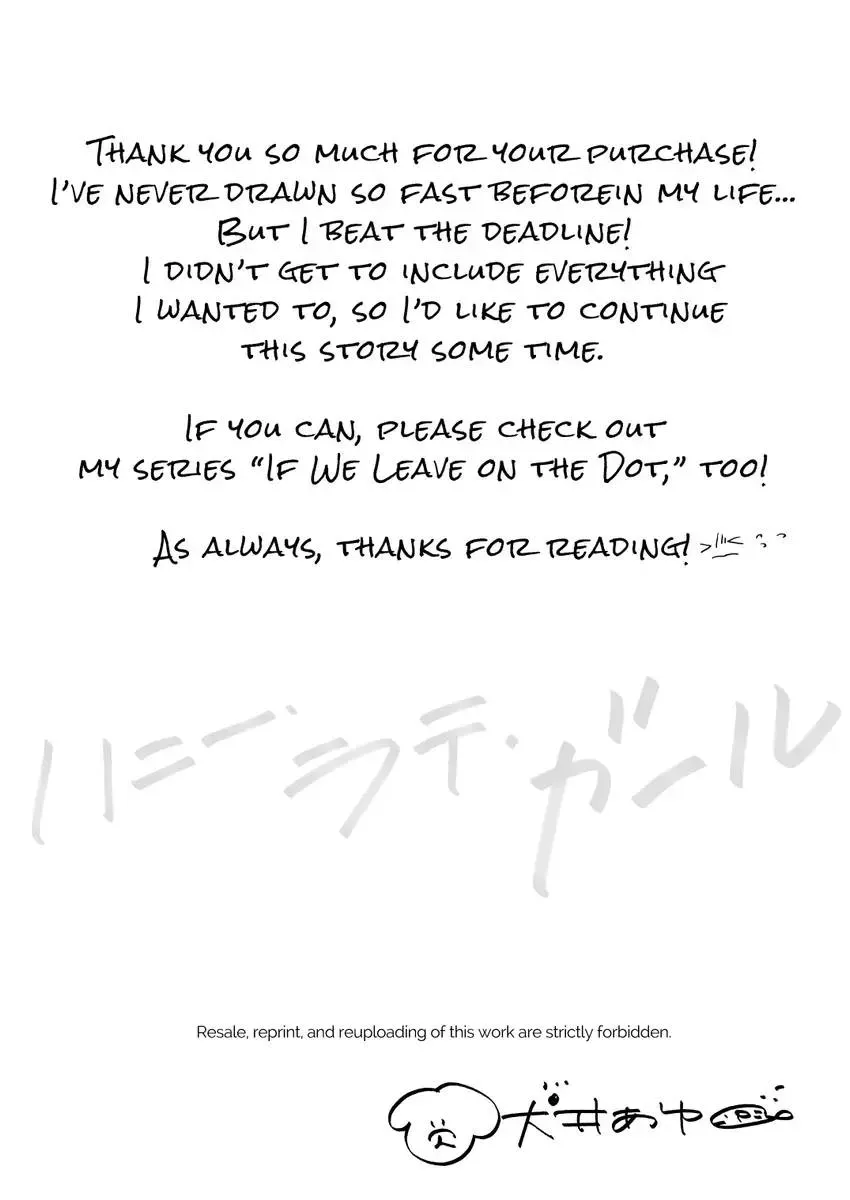 Thank you so much for your purchase!
I've never drawn so fast beforein my life...
But I beat the deadline!
I didn't get to include everything
I wanted to, so I'd like to continue
this story some time.
If you can, please check out
my series “If We Leave on the Dot,” too!
As always, thanks for reading!
ハニー・ラテ・ガール
Resale, reprint, and reuploading of this work are strictly forbidden.
犬井あゆ